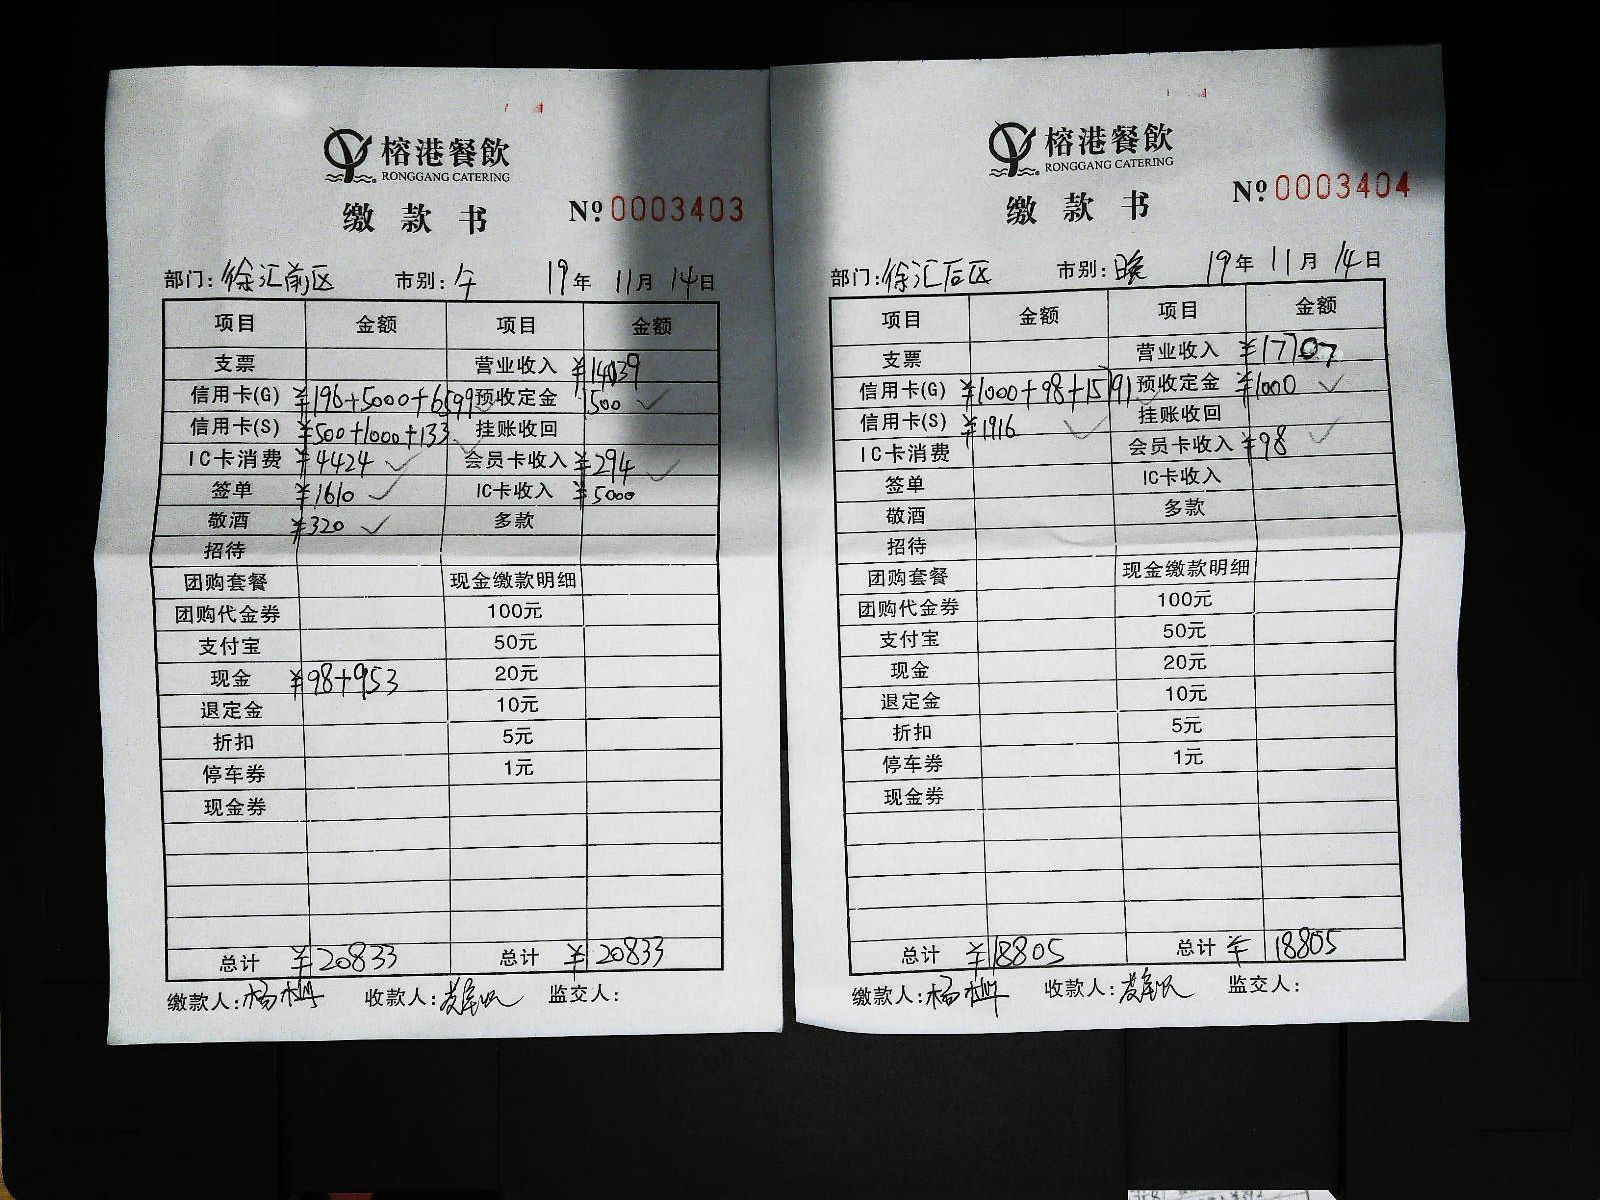 榕港餐飲
RONGGANG CATERING
缴款书 Nº 0003403
部门: 徐汇前区 市别: 午 19年 11月 14日
项目 金额 项目 金额
支票 营业收入 ¥14039
信用卡(G) ¥196+5000+6599 预收定金 1500
信用卡(S) ¥500+1000+133 挂账收回
IC卡消费 ¥4424 会员卡收入 ¥294
签单 ¥1610 IC卡收入 ¥5000
敬酒 ¥320 多款
招待
团购套餐 现金缴款明细
团购代金券 100元
支付宝 50元
现金 ¥98+953 20元
退定金 10元
折扣 5元
停车券 1元
现金券
总计 ¥20833 总计 ¥20833
缴款人: 收款人: 监交人:
榕港餐飲
RONGGANG CATERING
缴款书 Nº 0003404
部门: 徐汇后区 市别: 晚 19年 11月 14日
项目 金额 项目 金额
支票 营业收入 ¥17707
信用卡(G) ¥1000+98+15791 预收定金 ¥1000
信用卡(S) ¥1916 挂账收回
IC卡消费 会员卡收入 ¥98
签单 IC卡收入
敬酒 多款
招待
团购套餐 现金缴款明细
团购代金券 100元
支付宝 50元
现金 20元
退定金 10元
折扣 5元
停车券 1元
现金券
总计 ¥18805 总计 ¥18805
缴款人: 收款人: 监交人: